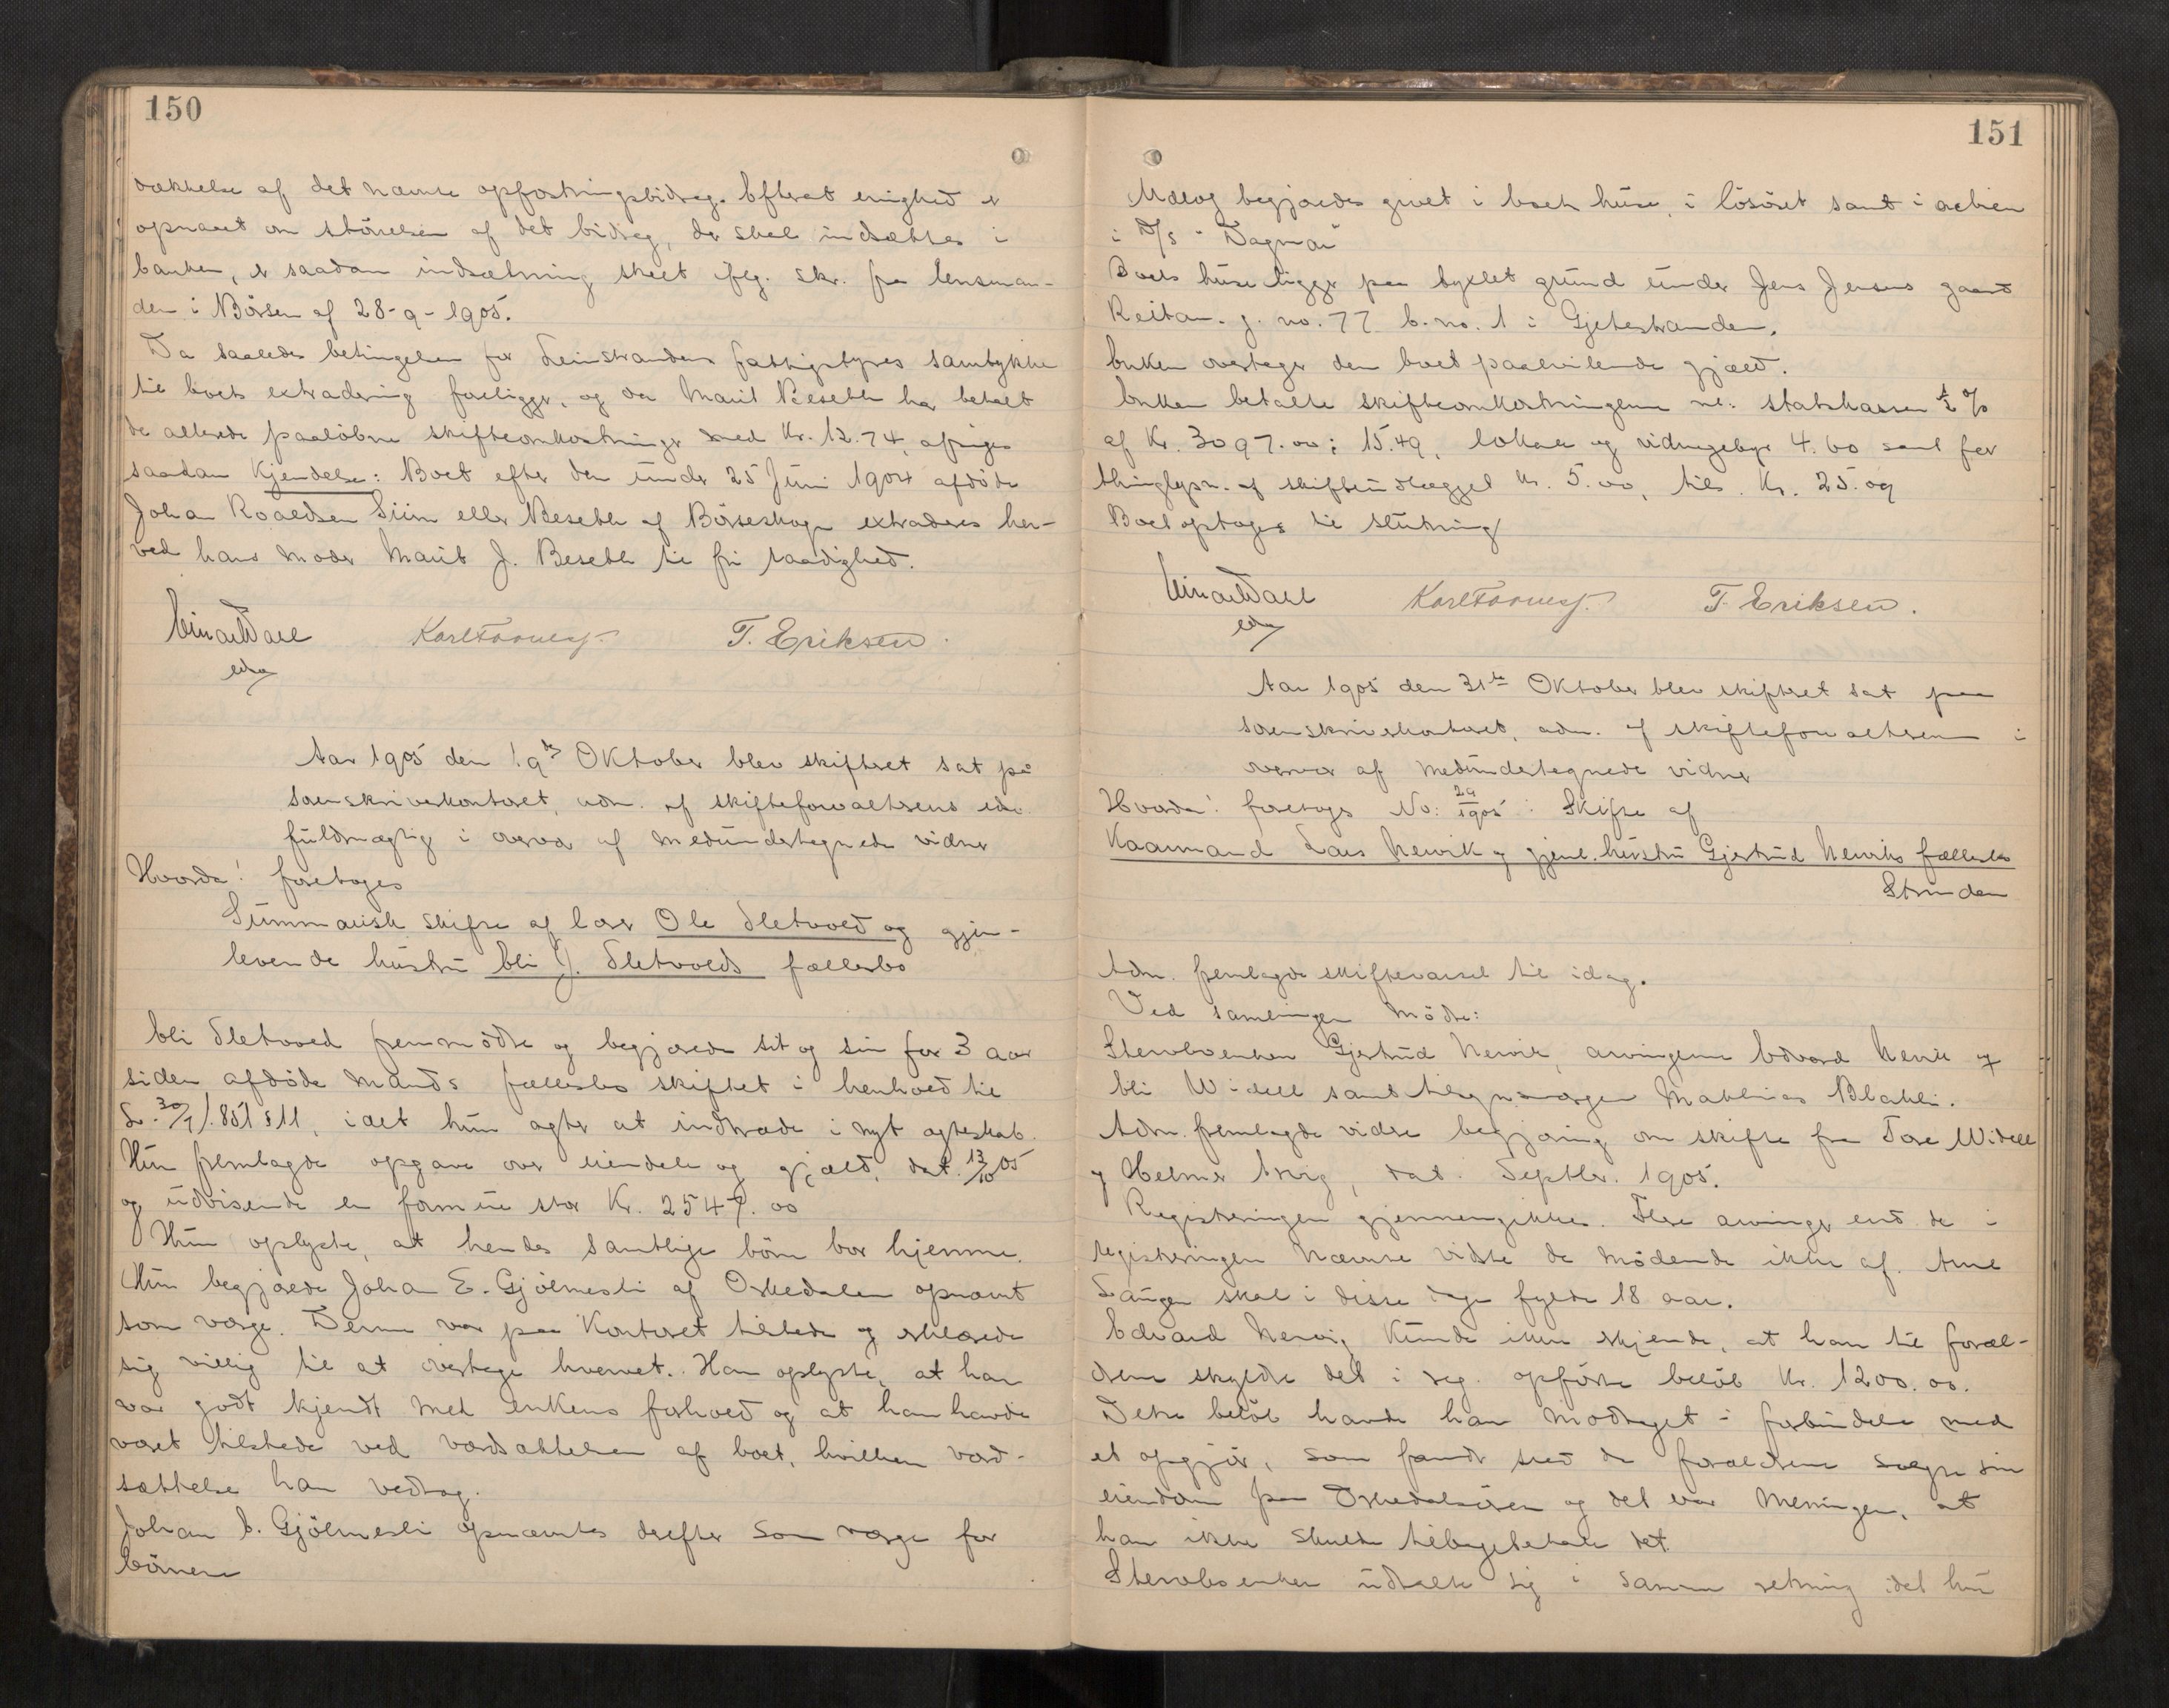 150
dækkelse af det nævnte opfostringsbidrag. Efterat enighed er
opnaaet om störrelsen af det bidrag, der skal indsættes i
banken, er saadan indsætning skeet ifølg. skr. fra lensman-
den i Börsen af 28-9-1905.
Da saaledes betingelsen for Leinstrandens fattigstyres samtykke
til boets extradering foreligger, og da Marit Beseth har betalt
de allerede paaløbne skifteomkostninger med Kr. 12.74, afsiges
saadan Kjendelse: Boet efter den under 25 Juni 1904 afdöde
Johan Roaldsen Siim eller Beseth af Börseskogn extraderes her-
ved hans moder Marit J. Beseth til fri raadighed.
Einar Dahl Karl T. Eriksen.
edsv
Aar 1905 den 19de Oktober blev skifteret sat på
sorenskriverkontoret, adm. af skifteforvalterens edsv.
fuldmægtig i overvær af medundertegnede vidner
Hvorda! foretoges
Summarisk skifte af lær Ole Sletvold og gjen-
levende hustru Eli J. Sletvolds fællesbo
Eli Sletvold fremmödte og begjærede sit og sin for 3 aar
siden afdöde mands fællesbo skiftet i henhold til
L. 30/7 1851 § 11, idet hun agter at indtræde i nyt ægteskab.
Hun fremlagde opgave over eiendele og gjæld, dat. 13/10 05
og udvisende en formue stor Kr. 2547.00
Hun oplyste, at hendes samtlige börn bor hjemme.
Hun begjærede Johan E. Gjölmesli af Orkedalen opnævnt
som værge. Denne var paa Kontoret tilstede og erklærede
sig villig til at overtage hvervet. Han oplyste, at han
var godt kjendt med enkens forhold og at han havde
været tilstede ved værdsættelsen af boet, hvilken værd-
sættelse han vedtog.
Johan E. Gjölmesli opnævntes derefter som værge for
börnene
151
Udlæg begjæredes givet i boets huse, i lösöret samt i actien
i D/S "Dagmar"
Boets huse ligger paa byxlet grund under Jens Jensens gaard
Reitan. g. no. 77 b. no. 1 i Gjetestranden.
Enken overtager den boet paahvilende gjæld.
Enken betalte skifteomkostningerne nl: statskassen ½ %
af Kr. 3097.00: 15.49, lokale og vidnegebyr 4.60 samt for
thinglysn. af skifteudlægget Kr. 5.00, tils. Kr. 25.09
Boet optoges til slutning
Einar Dahl Karl T. Eriksen.
edsv
Aar 1905 den 31te Oktober blev skifteret sat paa
sorenskriverkontoret, adm. af skifteforvalteren i
overvær af medundertegnede vidner
Hvorda! foretoges No: 29/1905: Skifte af
Kaarmand Lars Nervik og gjenl. hustru Gjertrud Nerviks fællesbo
Strinden
Adm. fremlagde skiftevarsel til idag.
Ved samlingen mödte:
Stervboenken Gjertrud Nervik, arvingerne Edvard Nervik og
Eli Widell samt tilsynsværgen Mathias Blakli.
Adm. fremlagde vidre begjæring om skifte fra Tore Widell
og Helmer Berg, dat. Septbr. 1905.
Registreringen gjennemgikkes. Flere arvinger end de i
registreringen nævnte vidste de mödende ikke af. Arne
Langen skal i disse dage fylde 18 aar.
Edvard Nervig kunde ikke erkjende, at han til foræl-
drene skyldte det i reg. opförte belöb Kr. 1200.00.
Dette belöb havde han modtaget i forbindelse med
et opgjör, som fandt sted da forældrene solgte sin
eiendom paa Orkedalsören og det var meningen, at
han ikke skulde tilbagebetale det.
Stervboenken udtalte sig i samme retning idet hun